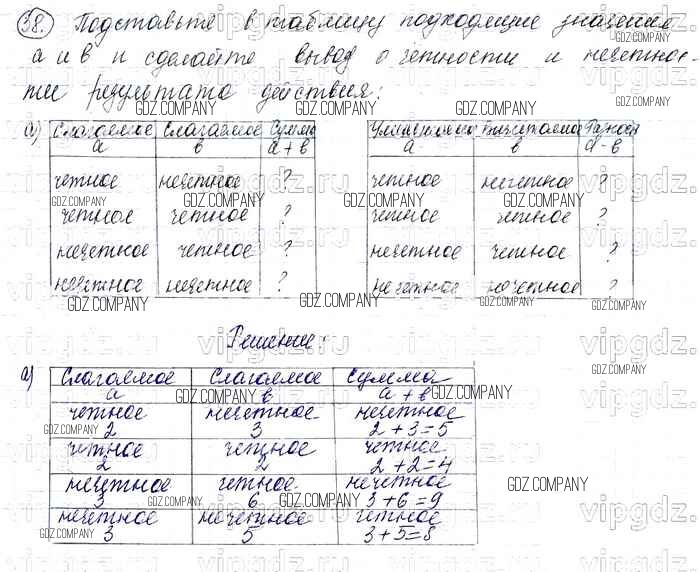 38. Подставьте в таблицу подходящие значения
а и в и сделайте вывод о четности и нечетнос-
ти результата действия:
а) Слагаемое Слагаемое Сумма
а в а + в
четное нечетное ?
четное четное ?
нечетное четное ?
нечетное нечетное ?
Уменьшаемое Вычитаемое Разность
а в а - в
четное нечетное ?
четное четное ?
нечетное четное ?
нечетное нечетное ?
Решение:
а) Слагаемое Слагаемое Сумма
а в а + в
четное нечетное нечетное
2 3 2 + 3 = 5
четное четное четное
2 2 2 + 2 = 4
нечетное четное нечетное
3 6 3 + 6 = 9
нечетное нечетное четное
3 5 3 + 5 = 8
GDZ.COMPANY
vipgdz.ru